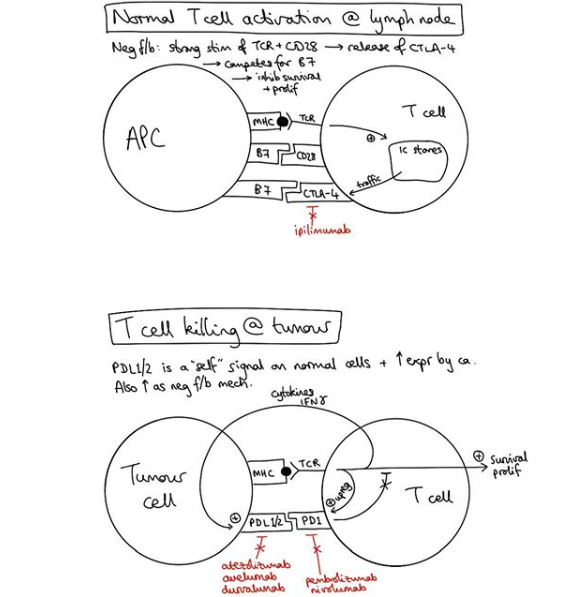 Normal T cell activation @ lymph node
Neg f/b: strong stim of TCR + CD28 → release of CTLA-4
→ competes for B7
→ inhib survival
+ prolif
APC
MHC
TCR
T cell
⊕
IC stores
B7
CD28
traffic
B7
CTLA-4
ipilimumab
T cell killing @ tumour
PDL1/2 is a "self" signal on normal cells + ↑ expr by ca.
Also ↑ as neg f/b mech.
cytokines
IFNγ
Tumour
cell
MHC
TCR
⊕ survival
prolif
⊕ upreg
T cell
⊕
PDL1/2
PD1
atezolizumab
avelumab
durvalumab
pembrolizumab
nivolumab